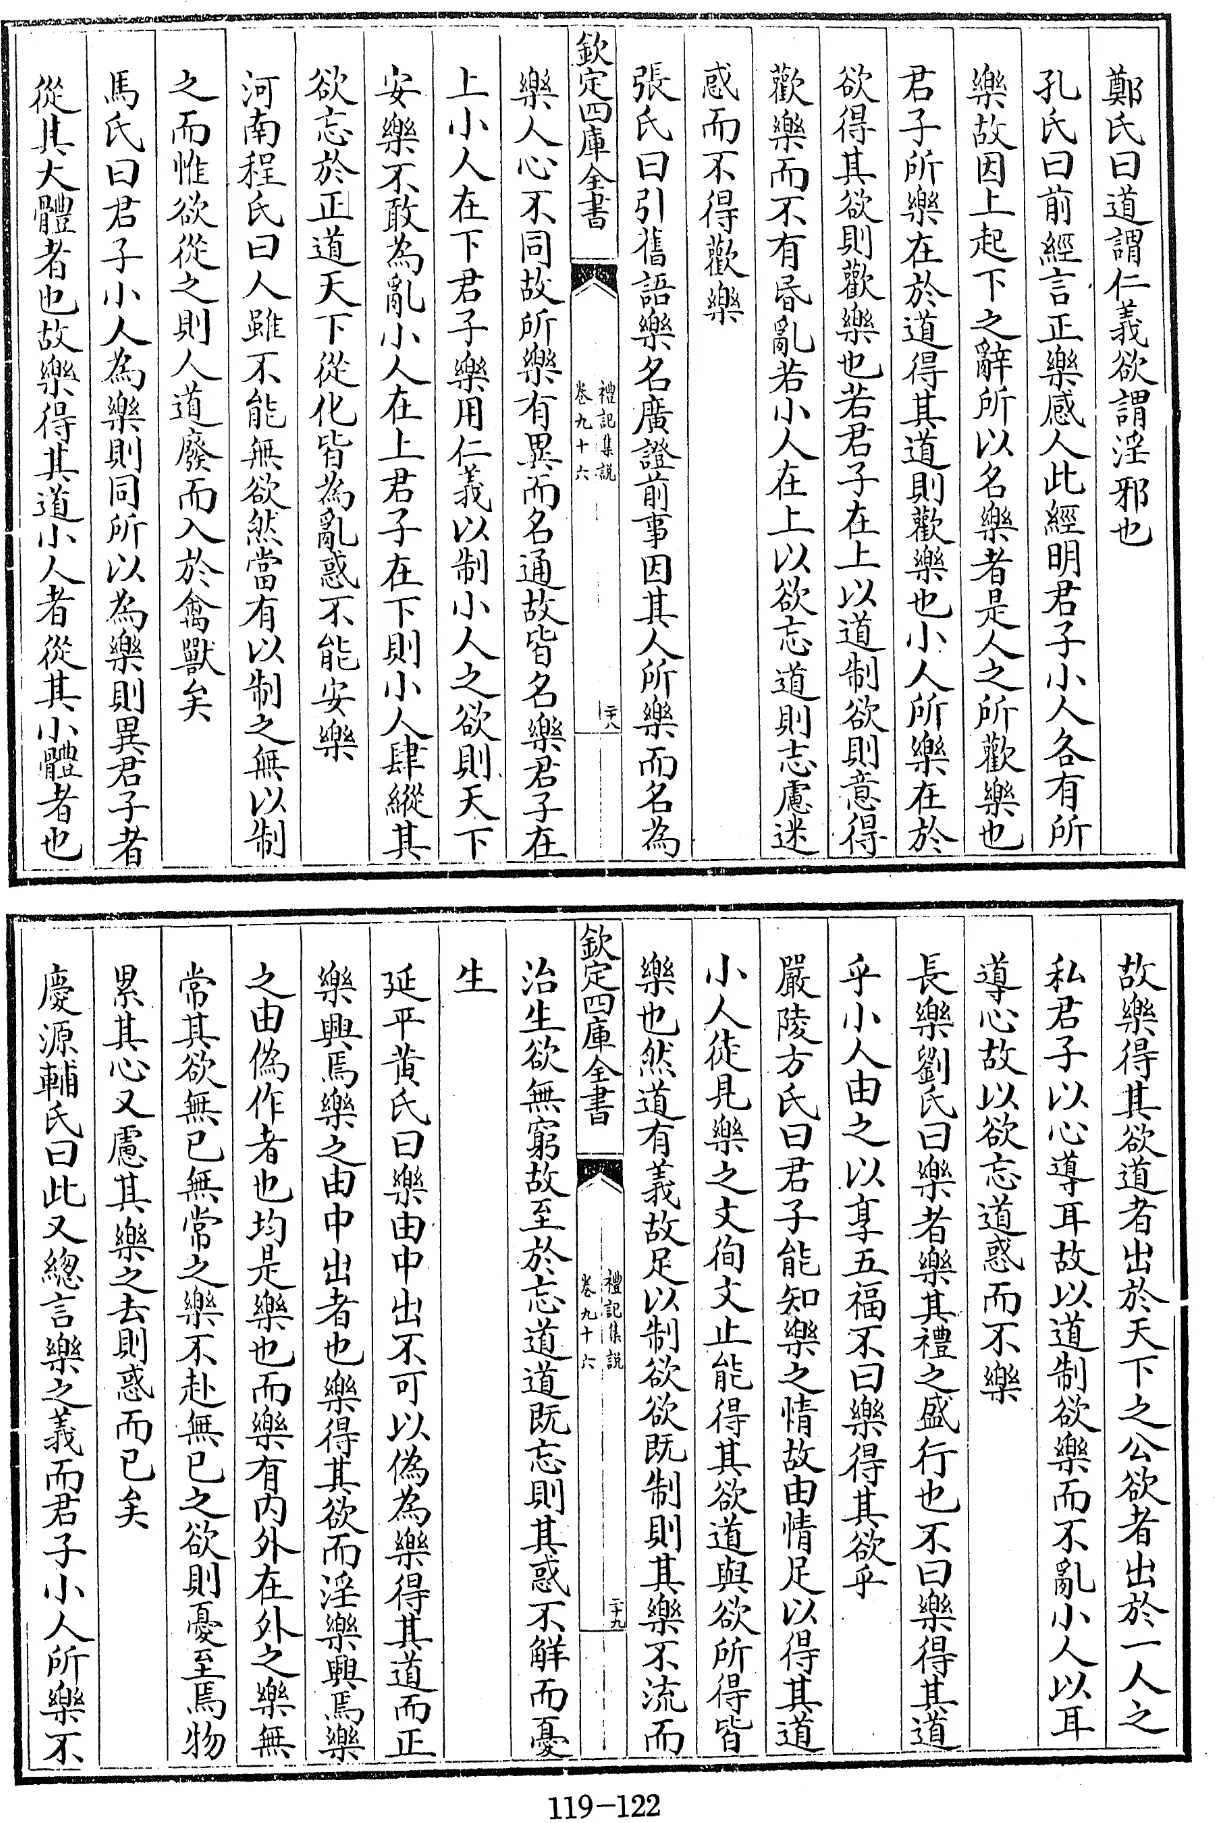 鄭氏曰道謂仁義欲謂淫邪也
孔氏曰前經言正樂感人此經明君子小人各有所
樂故因上起下之辭所以名樂者是人之所歡樂也
君子所樂在於道得其道則歡樂也小人所樂在於
欲得其欲則歡樂也若君子在上以道制欲則意得
歡樂而不有昏亂若小人在上以欲忘道則志慮迷
惑而不得歡樂
張氏曰引舊語樂名廣證前事因其人所樂而名為
欽定四庫全書
禮記集說
卷九十六
二十八
樂人心不同故所樂有異而名通故皆名樂君子在
上小人在下君子樂用仁義以制小人之欲則天下
安樂不敢為亂小人在上君子在下則小人肆縱其
欲忘於正道天下從化皆為亂惑不能安樂
河南程氏曰人雖不能無欲然當有以制之無以制
之而惟欲從之則人道廢而入於禽獸矣
馬氏曰君子小人為樂則同所以為樂則異君子者
從其大體者也故樂得其道小人者從其小體者也
故樂得其欲道者出於天下之公欲者出於一人之
私君子以心導耳故以道制欲樂而不亂小人以耳
導心故以欲忘道惑而不樂
長樂劉氏曰樂者樂其禮之盛行也不曰樂得其道
乎小人由之以享五福不曰樂得其欲乎
嚴陵方氏曰君子能知樂之情故由情足以得其道
小人徒見樂之文徇文止能得其欲道與欲所得皆
樂也然道有義故足以制欲欲既制則其樂不流而
欽定四庫全書
禮記集說
卷九十六
二十九
治生欲無窮故至於忘道道既忘則其惑不解而憂
生
延平黄氏曰樂由中出不可以偽為樂得其道而正
樂興焉樂之由中出者也樂得其欲而淫樂興焉樂
之由偽作者也均是樂也而樂有内外在外之樂無
常其欲無已無常之樂不赴無已之欲則憂至焉物
累其心又慮其樂之去則惑而已矣
慶源輔氏曰此又總言樂之義而君子小人所樂不
119-122